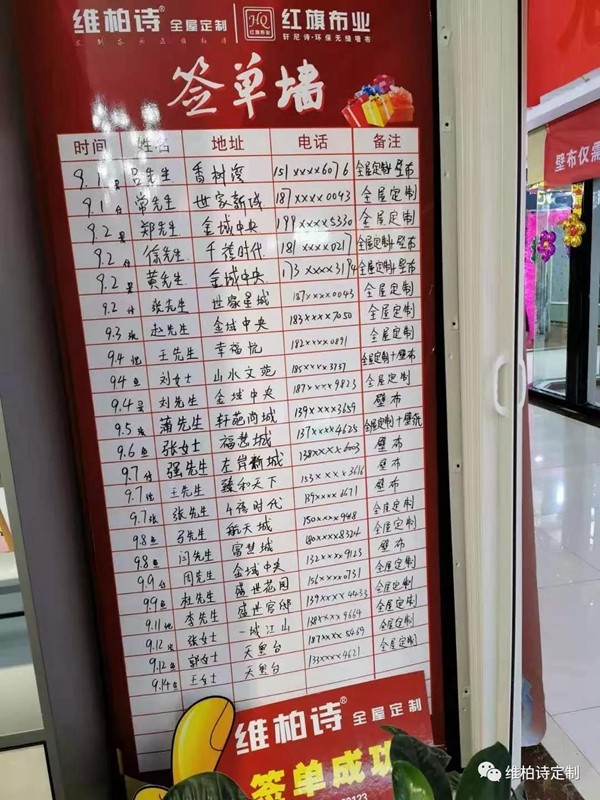 维柏诗® 全屋定制 HQ 红旗布业 红旗布业
轩尼诗·环保无缝墙布
签单墙
时间 姓名 地址 电话 备注
9.1 吕先生 香树湾 151xxxx6076 全屋定制+壁布
9.1 常先生 世家新城 187xxxx0043 全屋定制
9.2 郑先生 金域中央 199xxxx5330 全屋定制
9.2 徐先生 千禧时代 181xxxx0217 全屋定制+壁布
9.2 黄先生 金域中央 173xxxx3194 全屋定制+壁布
9.2 张先生 世家星城 187xxxx0043 全屋定制
9.3 赵先生 金域中央 183xxxx7050 全屋定制
9.4 王先生 幸福悦 182xxxx0891 全屋定制
9.4 刘女士 山水文苑 185xxxx3757 全屋定制+壁布
9.4 刘先生 金域中央 187xxxx9823 全屋定制
9.5 蒲先生 轩苑商城 139xxxx3659 壁布
9.6 张女士 福慧城 137xxxx4625 全屋定制+壁布
9.7 强先生 左岸新城 138xxxx6003 壁布
9.7 王先生 臻和天下 153xxxx3616 壁布
9.7 张先生 千禧时代 189xxxx4671 壁布
9.8 马先生 航天城 150xxxx948 全屋定制
9.8 闫先生 富慧城 180xxxx8324 全屋定制
9.9 周先生 金域中央 132xxxx9123 壁布
9.9 杜先生 盛世花园 156xxxx0731 全屋定制
9.11 李先生 盛世官邸 139xxxx4433 全屋定制
9.12 张女士 一城江山 138xxxx9664 全屋定制
9.12 郭女士 天墨台 187xxxx5469 全屋定制
9.14 王女士 天墨台 133xxxx4621 全屋定制
维柏诗® 全屋定制
签单成功
0123
壁布仅需
维柏诗定制